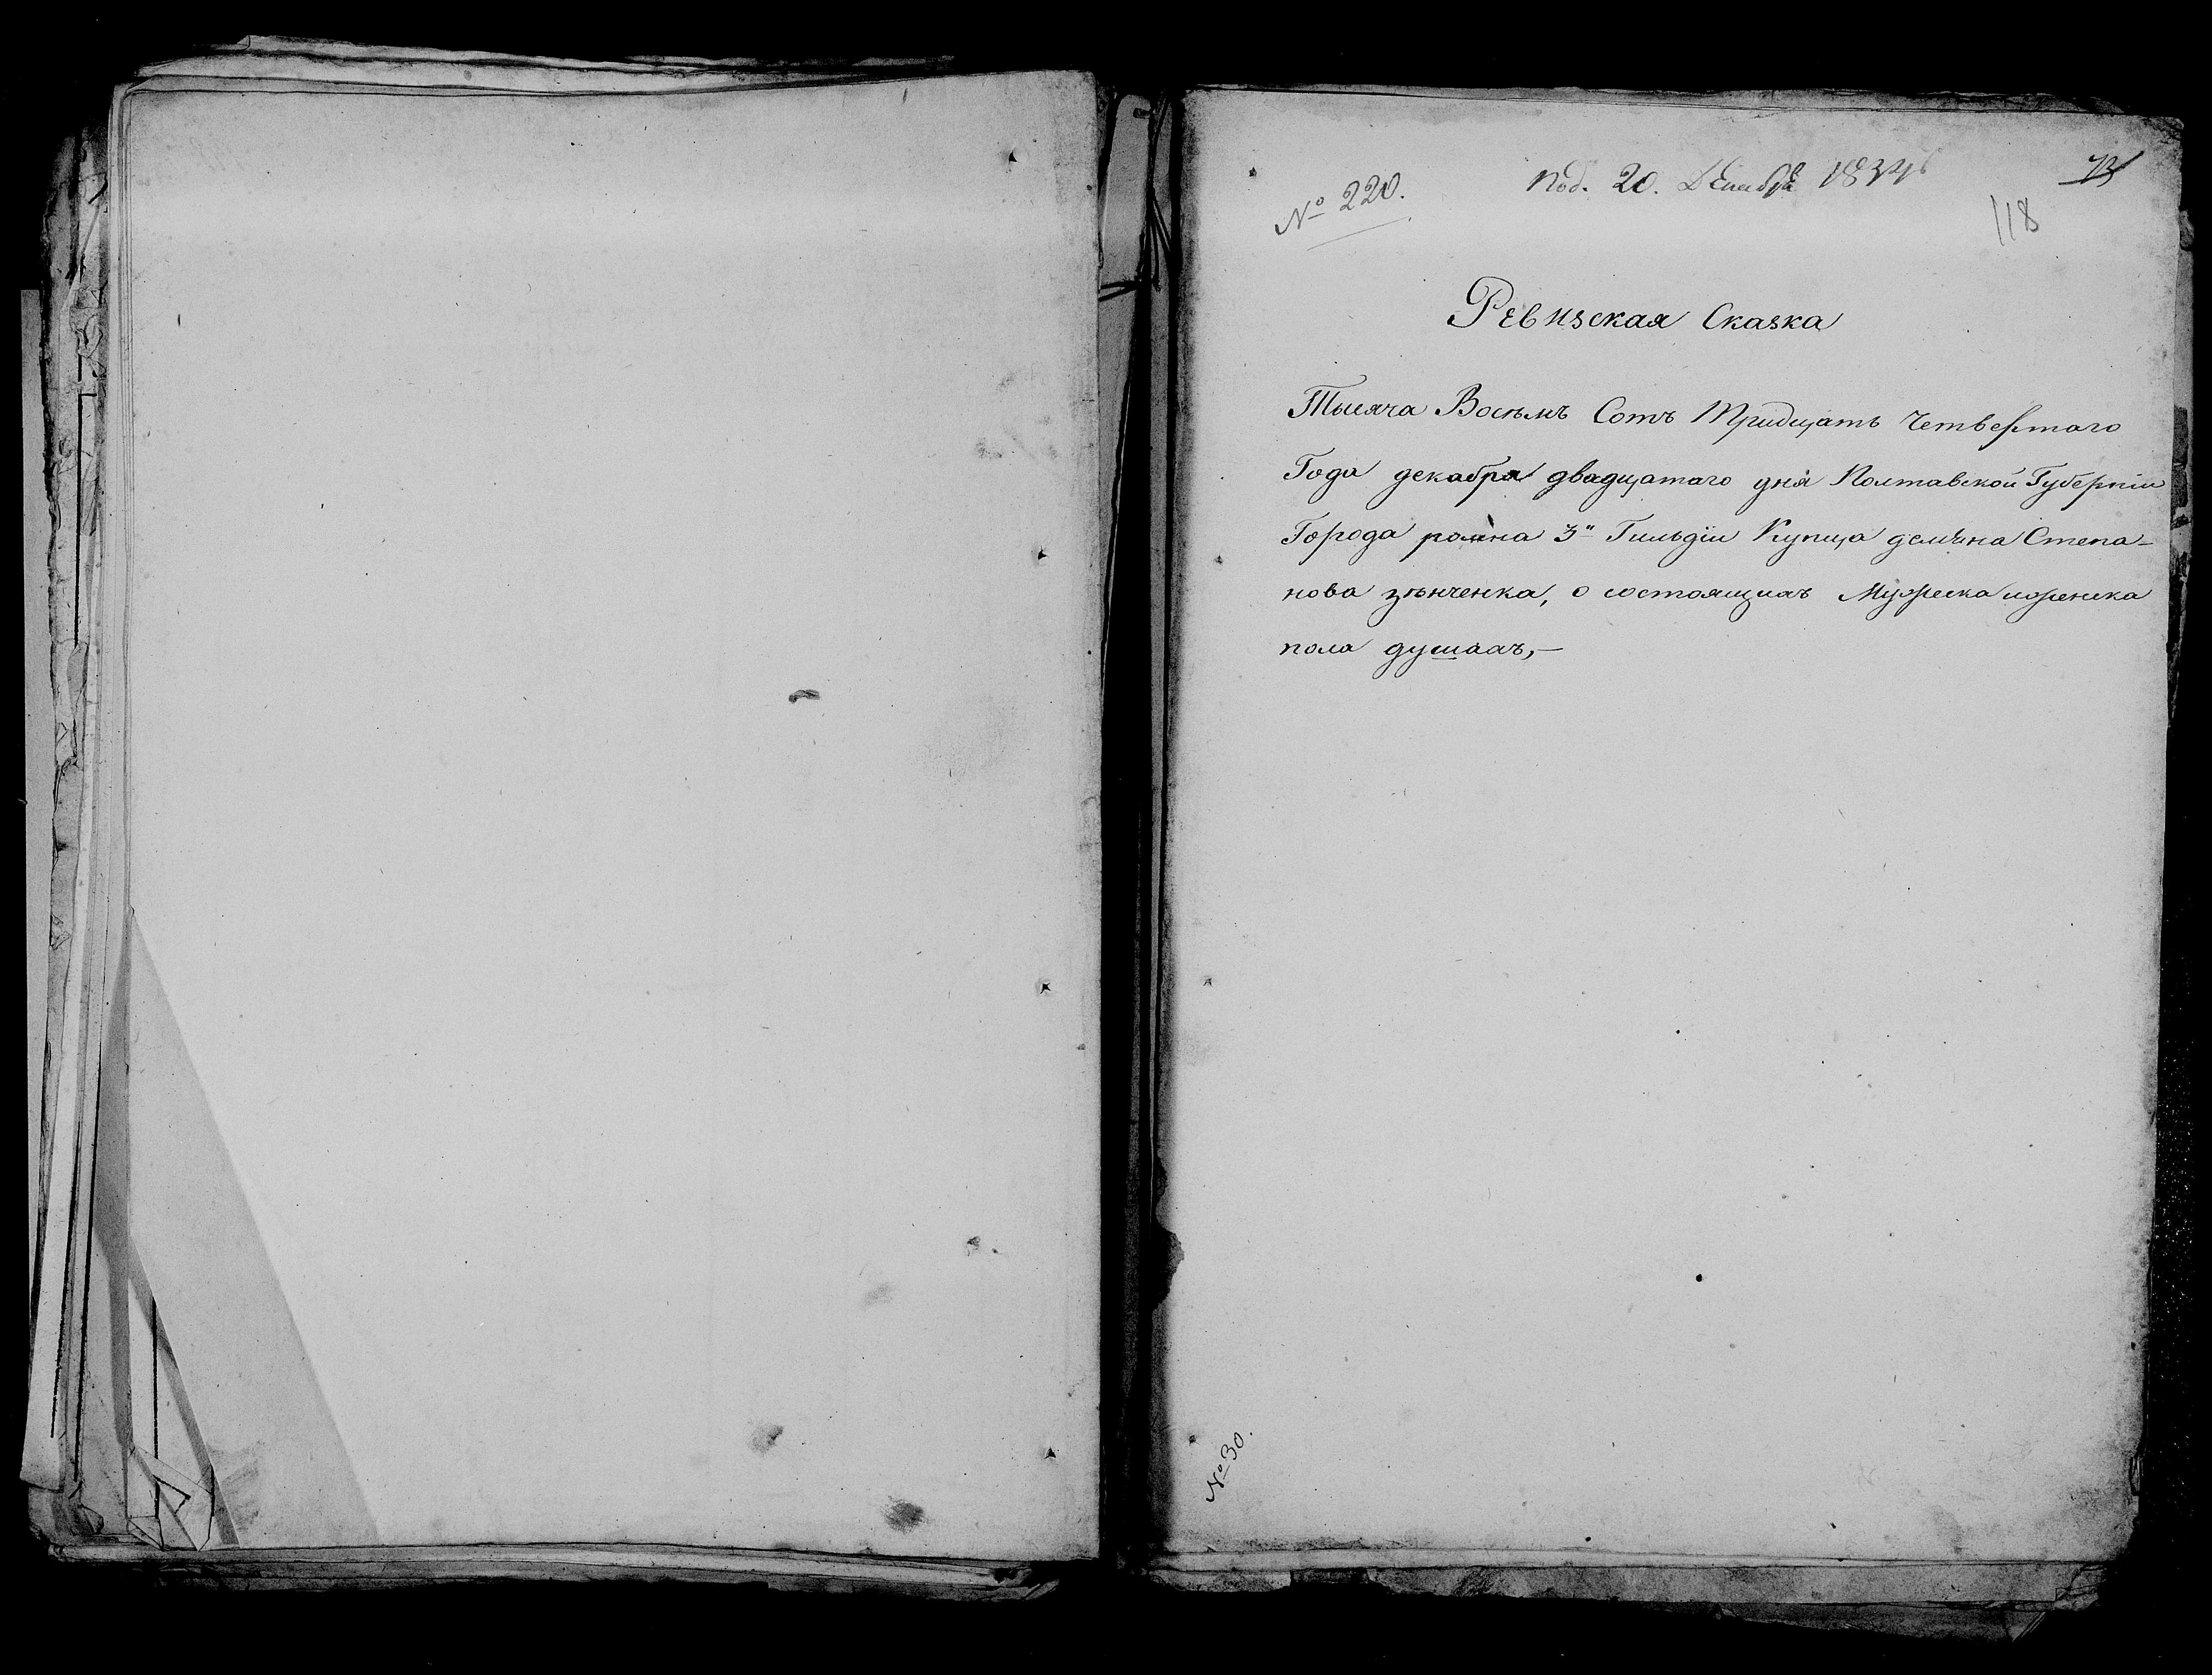 № 220.
Под. 20. Декабря 1834
73
118
Ревизская Сказка
Тысяча Восѣмъ Сотъ Тридцать Четвертаго
Года декабря двадцатаго дня Полтавской Губерніи
Города ромна 3й Гильдіи Купца демяна Степа-
нова зѣнченка, о состоящихъ Мужеска и женска
пола душахъ,—
№ 30.